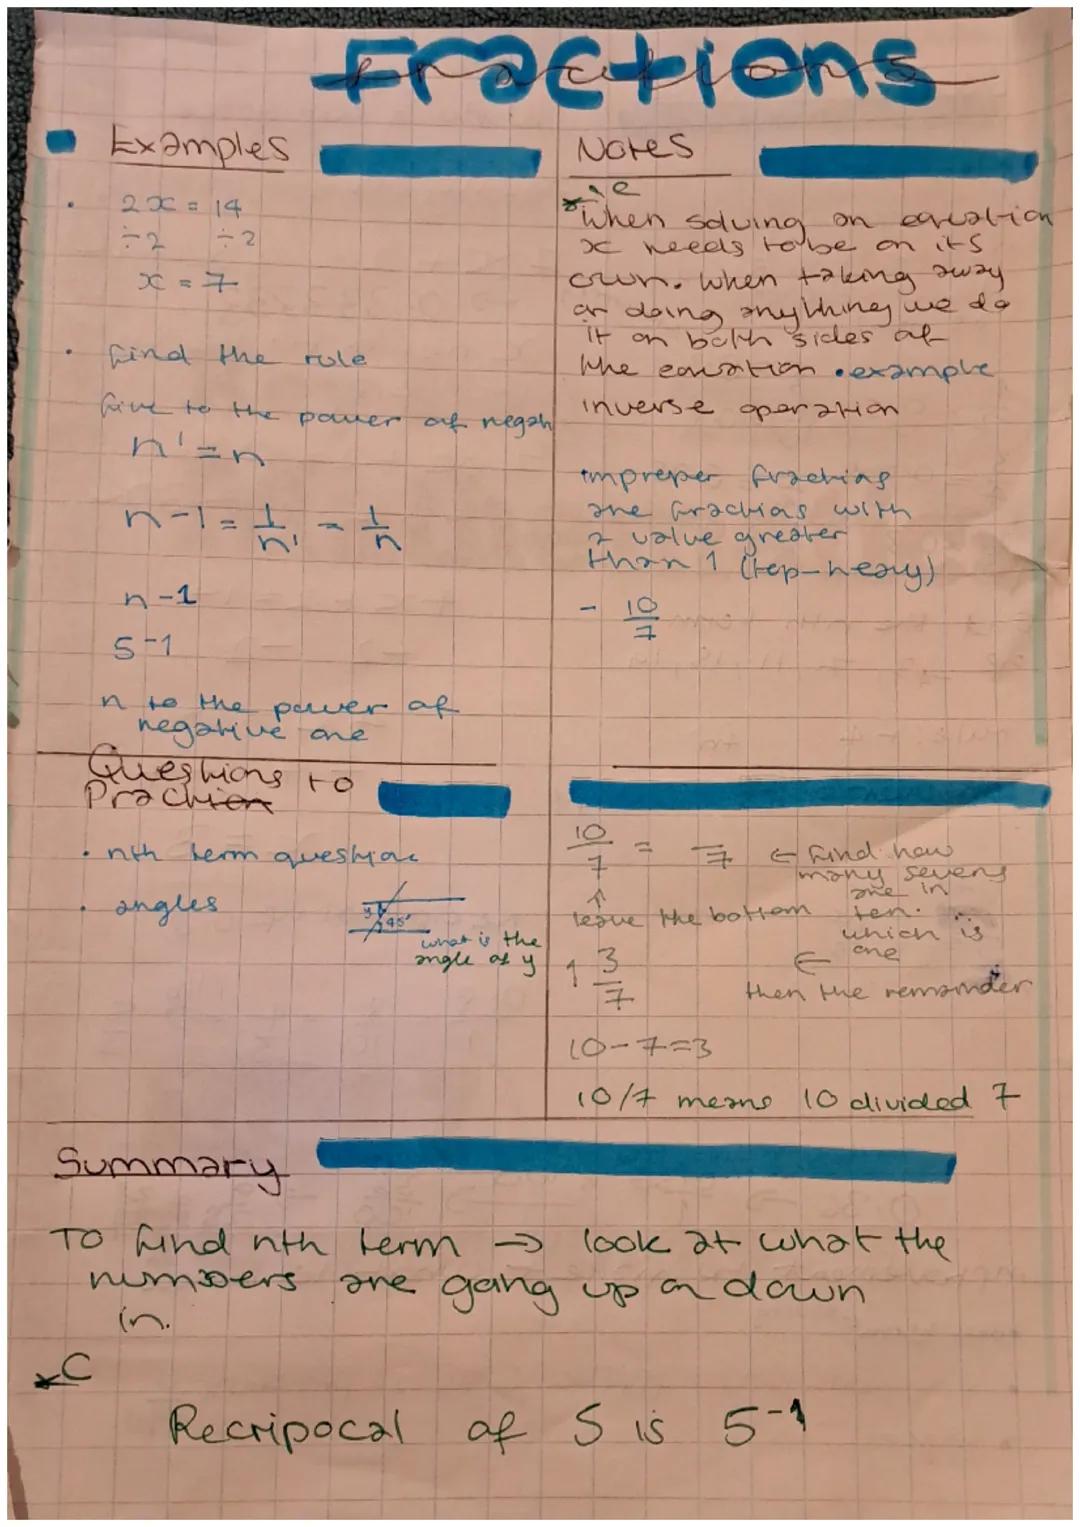 Fractions
Examples
2x = 14
÷2 ÷2
x = 7
find the rule
five to the power of negati
n¹ = n
n-1 = 1/n¹ = 1/n
n-1
5-1
n to the power of
negative one
Notes
When solving an equation
x needs to be on its
own. When taking away
or doing anything we do
it on both sides of
the equation • example
inverse operation
improper fractions
are fractions with
a value greater
than 1 (top-heavy)
- 10/7
Questions to
Practice
• nth term question
• angles
y 45°
what is the
angle of y
10/7 = /7 ← find how
many sevens
are in
ten.
which is
one
↑
leave the bottom
1 3/7 ←
then the remainder
10-7=3
10/7 means 10 divided 7
Summary
To find nth term → look at what the
numbers are going up or down
in.
C
Recripocal of 5 is 5-1